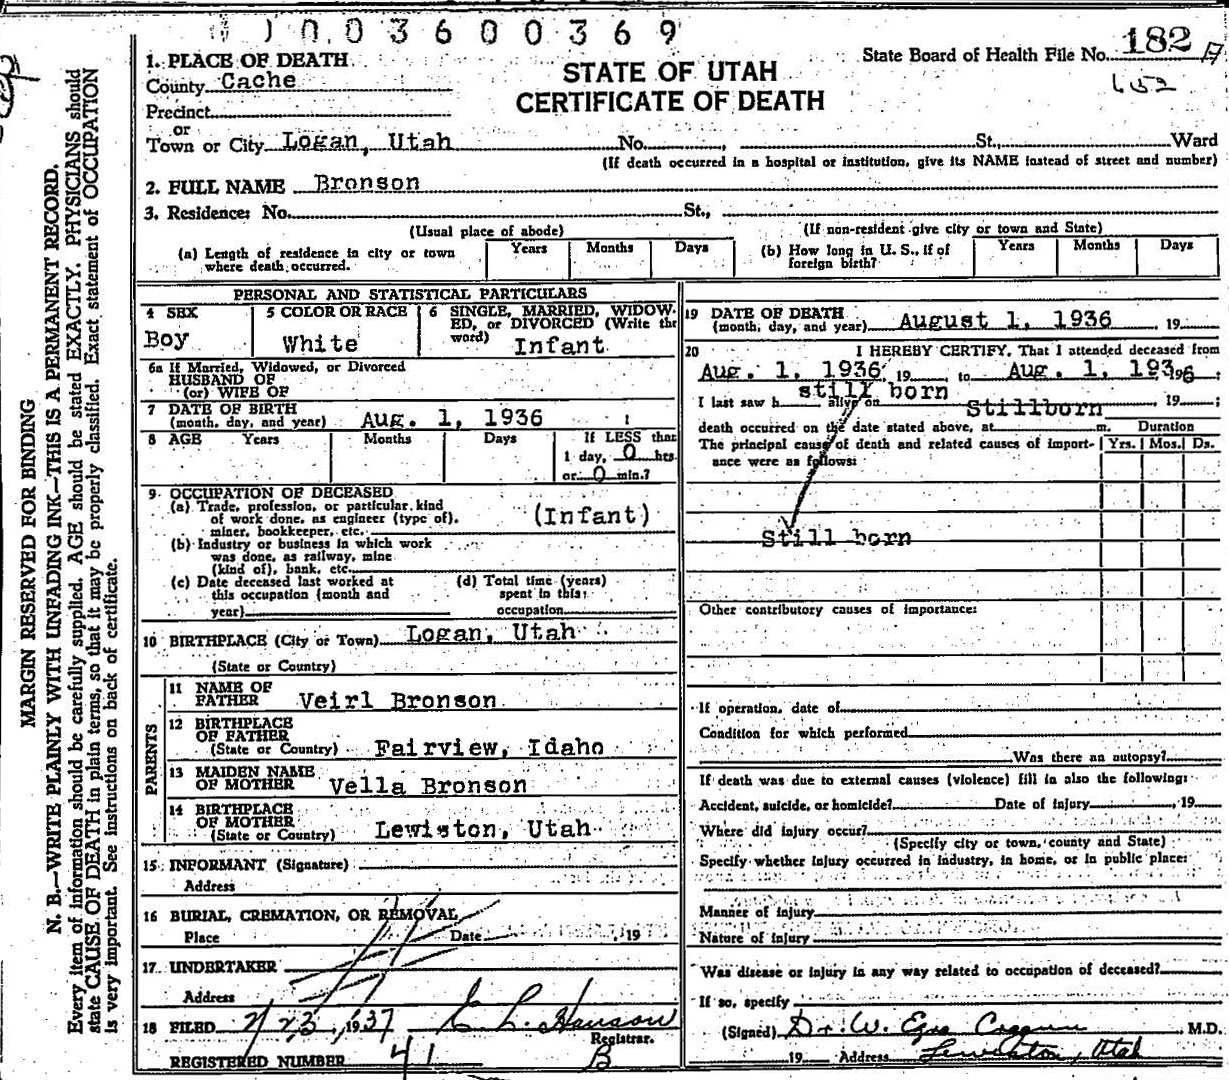 0 0 3 6 0 0 3 6 9
State Board of Health File No. 182 A
652
STATE OF UTAH
CERTIFICATE OF DEATH
1. PLACE OF DEATH
County Cache
Precinct
or
Town or City Logan, Utah No. , St., Ward
(If death occurred in a hospital or institution, give its NAME instead of street and number)
2. FULL NAME Bronson
3. Residence: No. St.,
(Usual place of abode) (If non-resident give city or town and State)
(a) Length of residence in city or town where death occurred. Years Months Days (b) How long in U. S., if of foreign birth? Years Months Days
PERSONAL AND STATISTICAL PARTICULARS
4 SEX
Boy
5 COLOR OR RACE
White
6 SINGLE, MARRIED, WIDOW-
ED, or DIVORCED (Write the
word) Infant
6a If Married, Widowed, or Divorced
HUSBAND OF
(or) WIFE OF
7 DATE OF BIRTH
(month, day, and year) Aug. 1, 1936
8 AGE Years Months Days If LESS than
1 day, 0 hrs.
or 0 min.?
9 OCCUPATION OF DECEASED
(a) Trade, profession, or particular kind
of work done, as engineer (type of),
miner, bookkeeper, etc. (Infant)
(b) Industry or business in which work
was done, as railway, mine
(kind of), bank, etc.
(c) Date deceased last worked at
this occupation (month and
year)
(d) Total time (years)
spent in this
occupation
10 BIRTHPLACE (City or Town) Logan, Utah
(State or Country)
PARENTS
11 NAME OF
FATHER Veirl Bronson
12 BIRTHPLACE
OF FATHER
(State or Country) Fairview, Idaho
13 MAIDEN NAME
OF MOTHER Vella Bronson
14 BIRTHPLACE
OF MOTHER
(State or Country) Lewiston, Utah
15 INFORMANT (Signature)
Address
16 BURIAL, CREMATION, OR REMOVAL
Place Date , 19
17 UNDERTAKER
Address
18 FILED 2/23, 1937 L. Hanson
Registrar.
REGISTERED NUMBER 41 B
19 DATE OF DEATH
(month, day, and year) August 1, 1936 , 19
20 I HEREBY CERTIFY, That I attended deceased from
Aug. 1, 1936, 19 , to Aug. 1, 1936 ;
still born
I last saw h alive on Stillborn , 19 ;
death occurred on the date stated above, at m. Duration
The principal cause of death and related causes of import-
ance were as follows: Yrs. Mos. Ds.
Still born
Other contributory causes of importance:
If operation, date of
Condition for which performed
Was there an autopsy?
If death was due to external causes (violence) fill in also the following:
Accident, suicide, or homicide? Date of injury , 19
Where did injury occur?
(Specify city or town, county and State)
Specify whether injury occurred in industry, in home, or in public place:
Manner of injury
Nature of injury
Was disease or injury in any way related to occupation of deceased?
If so, specify
(Signed) Dr. W. M.D.
19 Address Lewiston, Utah
MARGIN RESERVED FOR BINDING
N. B.—WRITE PLAINLY WITH UNFADING INK—THIS IS A PERMANENT RECORD.
Every item of information should be carefully supplied. AGE should be stated EXACTLY. PHYSICIANS should
state CAUSE OF DEATH in plain terms, so that it may be properly classified. Exact statement of OCCUPATION
is very important. See instructions on back of certificate.